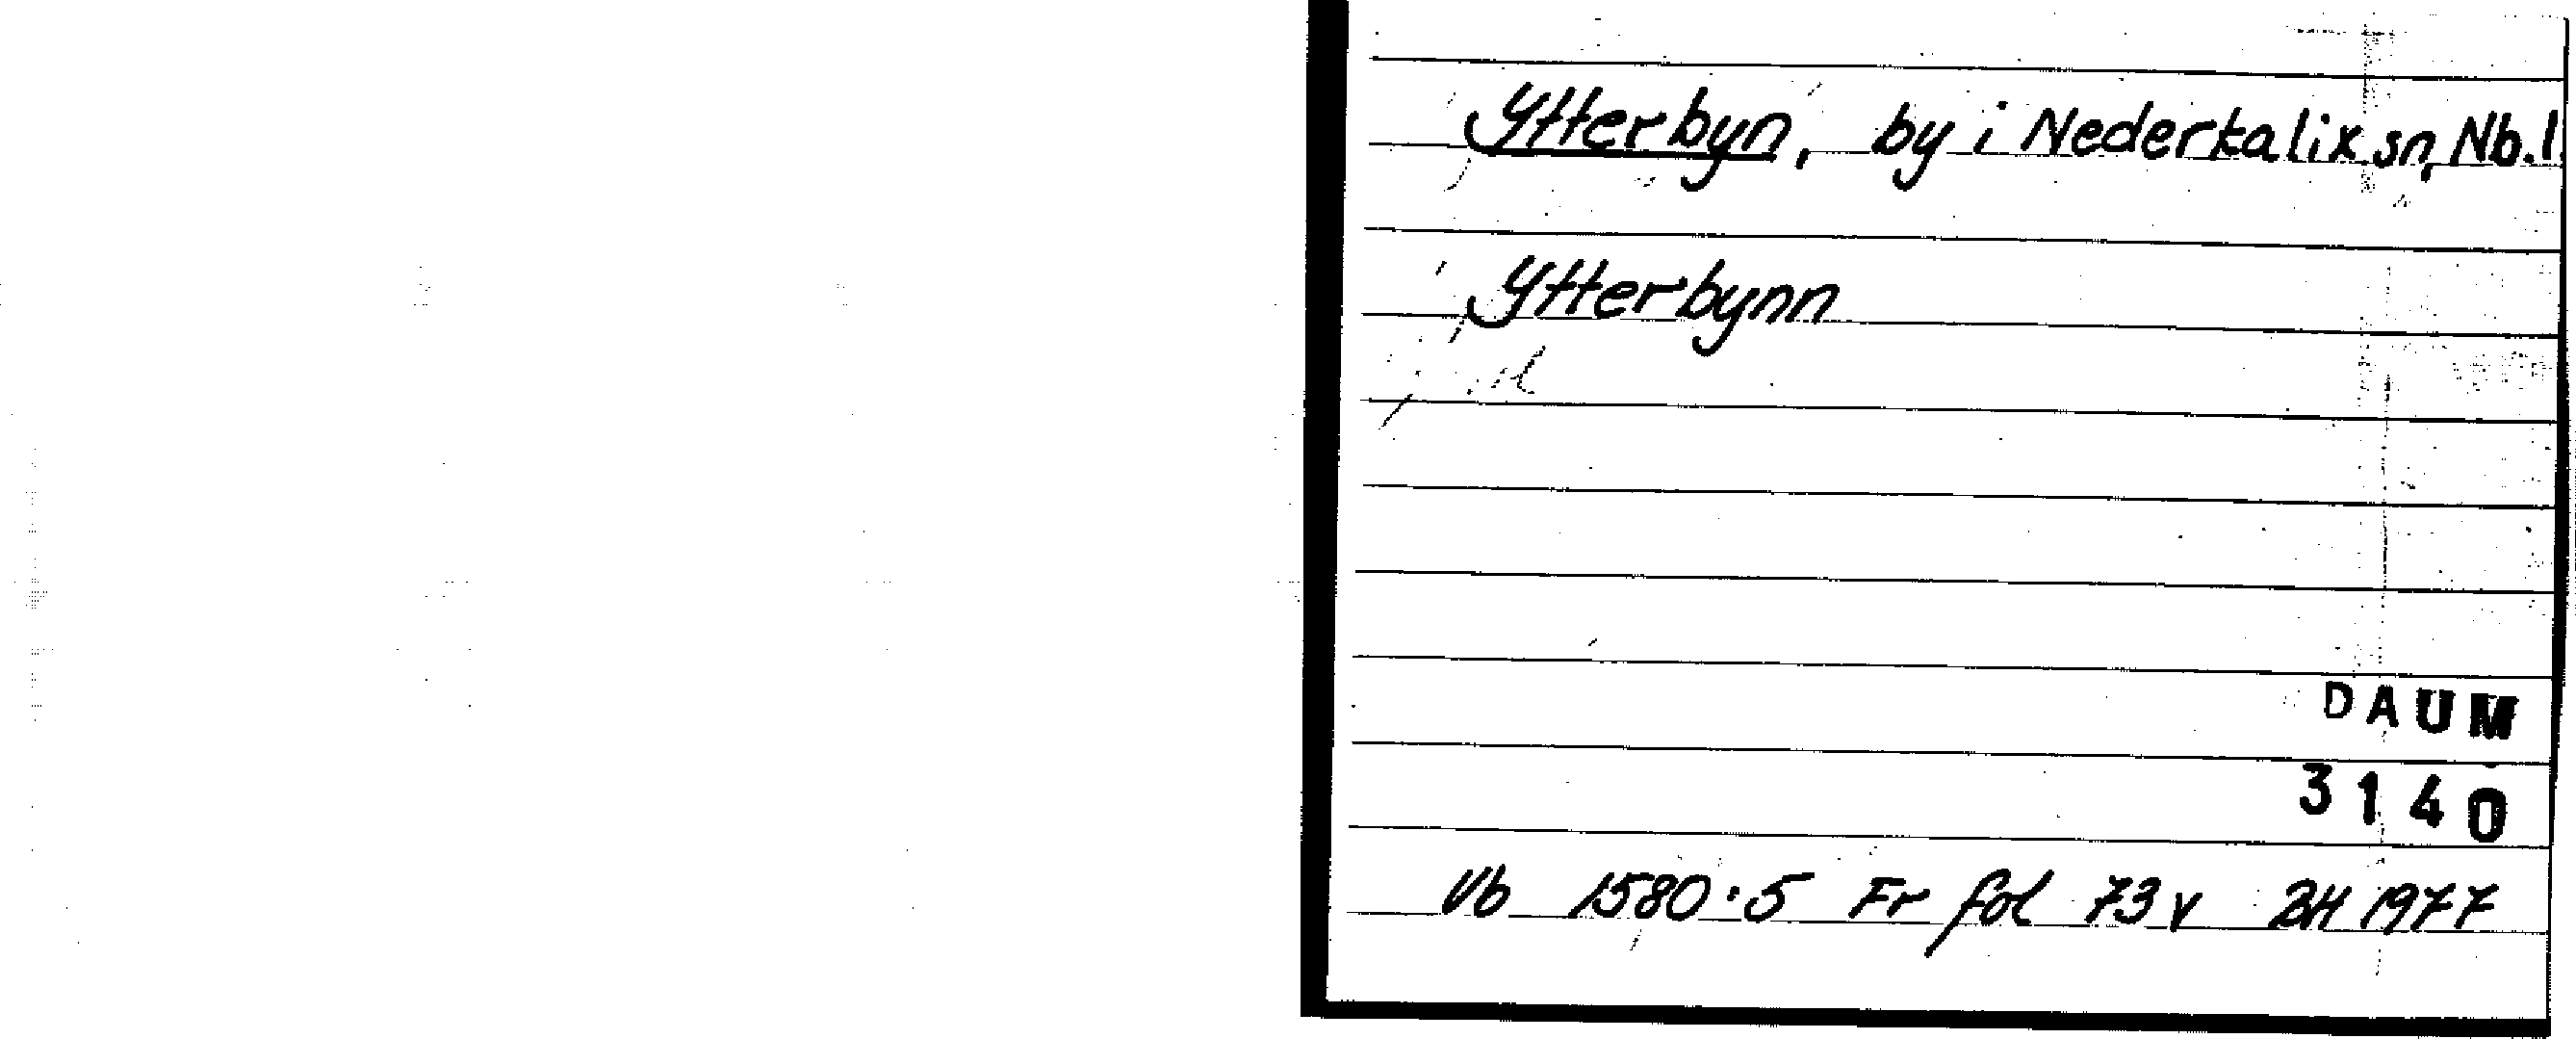 Ytterbyn, by i Nederkalix sn, Nb.l
Ytterbynn
DAUM
3140
Vb 1580:5 Fr fol 73 v BH 1977